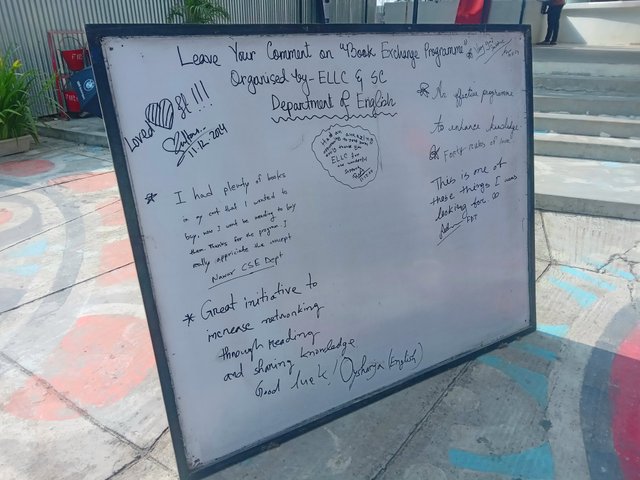 Leave Your Comment on "Book Exchange Programme"
Organised by- ELLC & SC
Department of English
Loved it!!!
11.12.2014
Had an amazing
ELLC for
* I had plenty of books
in my cart that I wanted to
buy, now I wont be needing to buy
them. Thanks for the program I
really appriciate the concept
Nawar CSE Dept
* Great initiative to
increase networking
through reading
and sharing knowledge
Good luck! (English)
* An effective programme
to enhance knowledge
* Forty rules of love
This is one of
these things I was
looking for